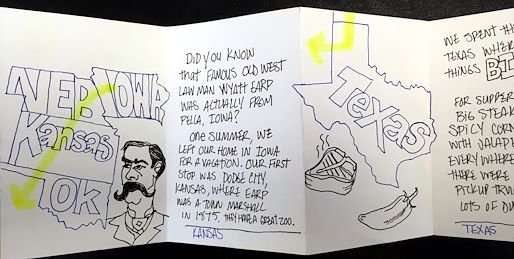 NEB
IOWA
Kansas
OK
DiD YOU KNOW
that FAMOUS OLD WEST
LAWMAN WYATT EARP
WAS ACTUALLY FROM
PELLA, IOWA?
ONE SUMMER, WE
LEFT OUR HOME IN IOWA
FOR A VACATION. OUR FIRST
STOP WAS DODGE CITY,
KANSAS, WHERE EARP
WAS A TOWN MARSHALL
IN 1875. THEY HAVE A GREAT ZOO.
KANSAS
TEXAS
WE SPENT
TEXAS WHER
THINGS BI
FOR SUPPER
BIG STEAK
SPICY CORN
WITH JALAP
EVERYWHERE
THERE WERE
PICKUP TRU
LOTS OF DU
TEXAS